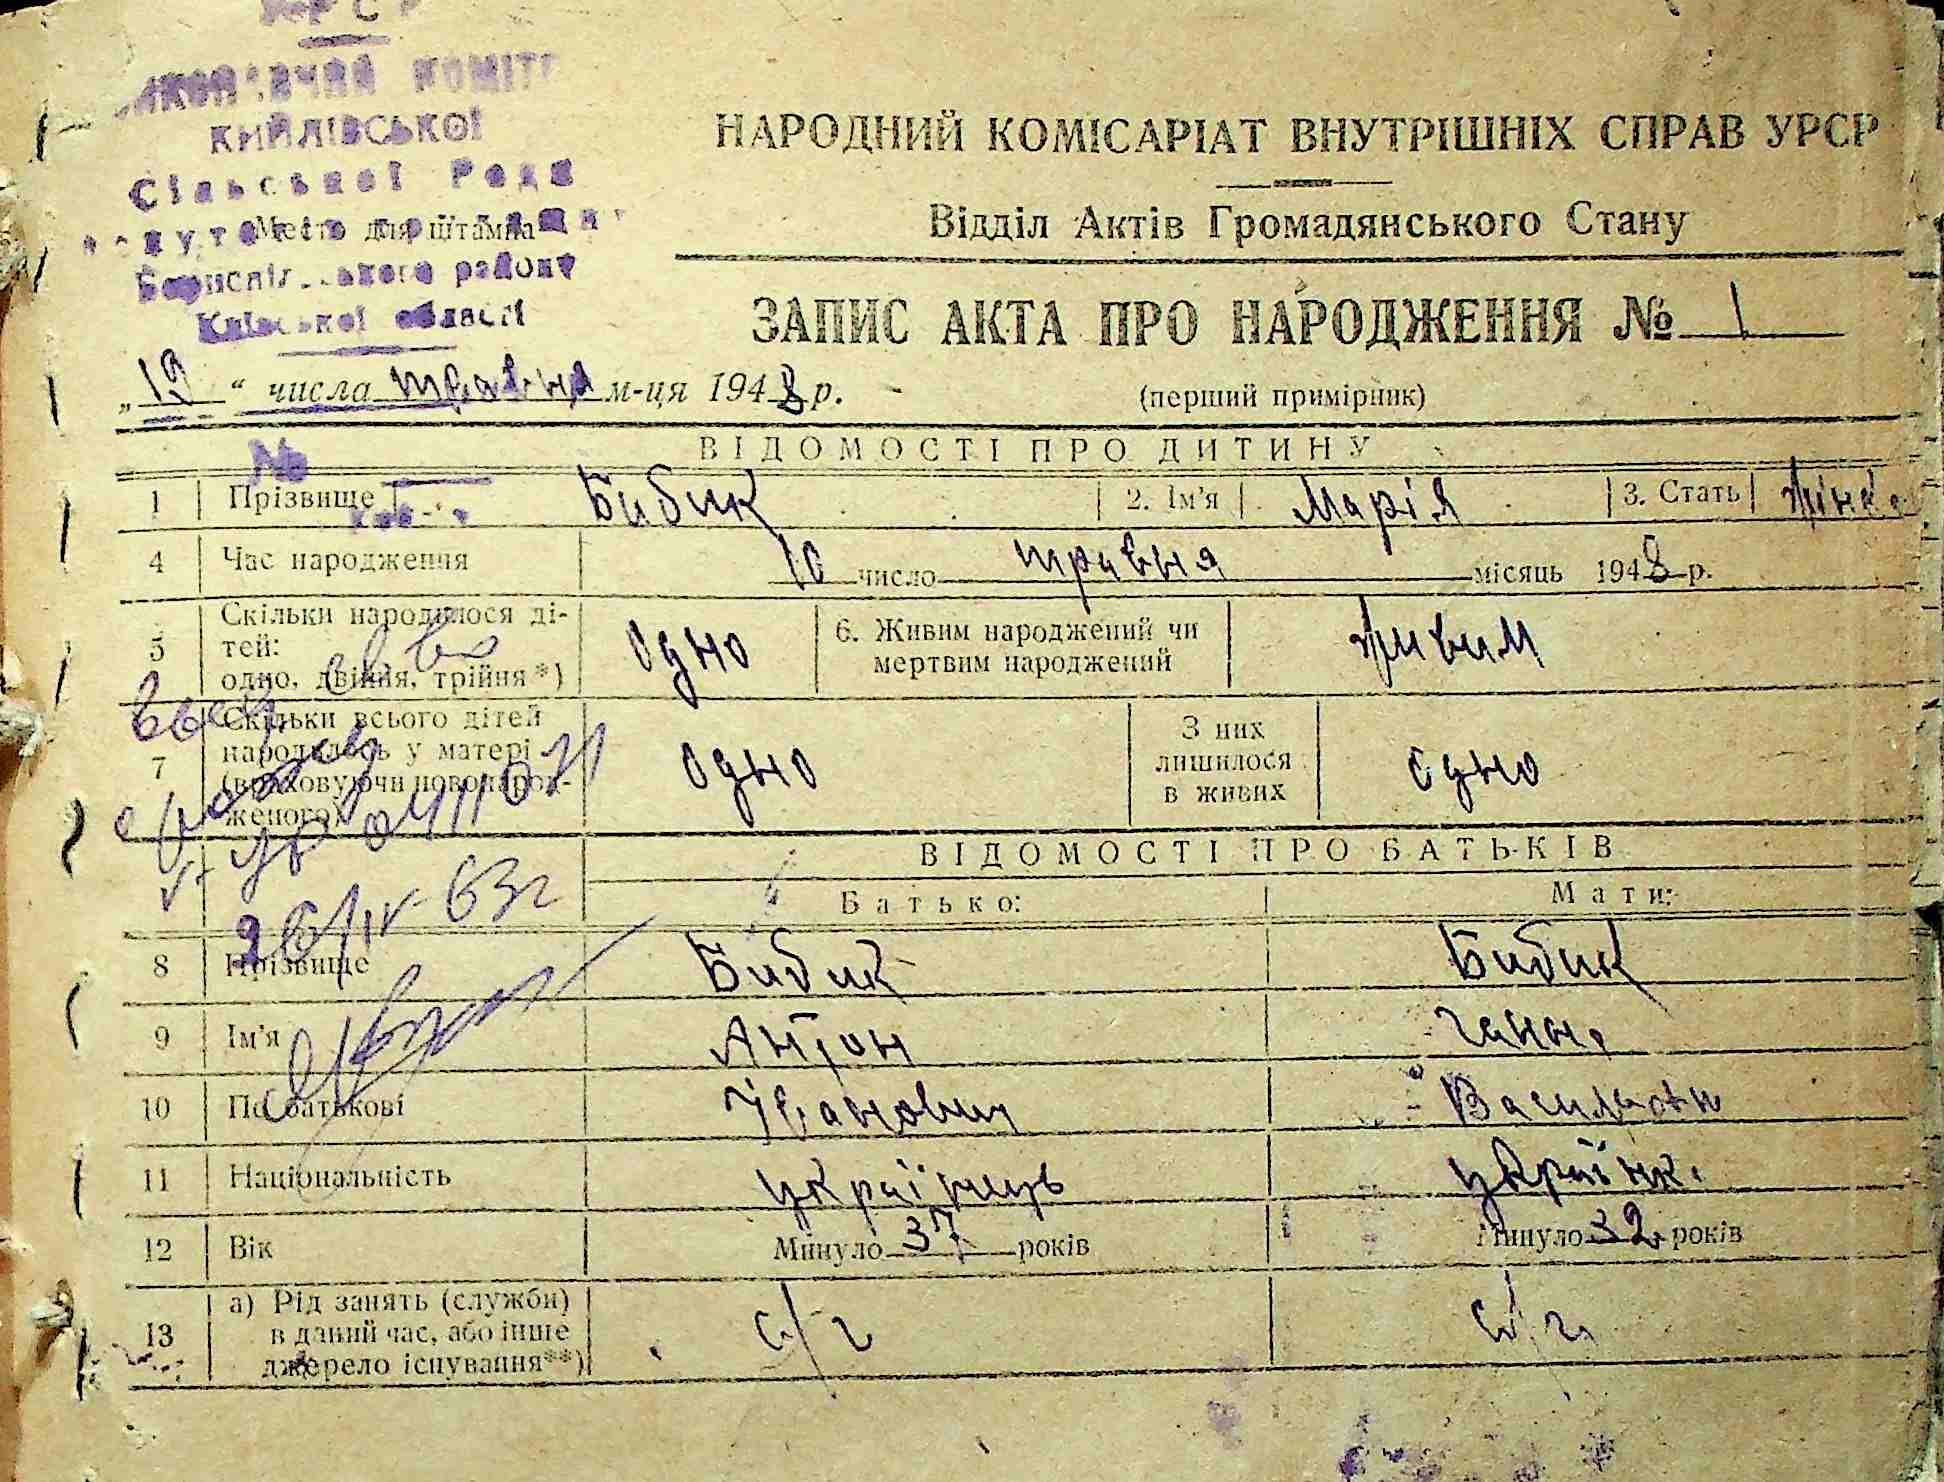 КИЙЛІВСЬКОЇ
Сільської Ради
Место для штампа
Бориспільського району
Київської області
НАРОДНИЙ КОМІСАРІАТ ВНУТРІШНІХ СПРАВ УРСР
Відділ Актів Громадянського Стану
ЗАПИС АКТА ПРО НАРОДЖЕННЯ № 1
„19“ числа травня м-ця 1948 р.
(перший примірник)
ВІДОМОСТІ ПРО ДИТИНУ
№
1 Прізвище Бибик 2. Ім'я Марія 3. Стать
4 Час народження 10 число травня місяць 1948 р.
5 Скільки народилося ді-
тей:
одно, двійня, трійня*) одно 6. Живим народжений чи
мертвим народжений живим
7 Скільки всього дітей
народилось у матері
(враховуючи новонарод-
женого) одно З них
лишилося
в живих одно
ВІДОМОСТІ ПРО БАТЬКІВ
Батько: Мати:
26/IV-63г
8 Прізвище Бибик Бибик
9 Ім'я Антон Ганна
10 По батькові Іванович
11 Національність українець українка
12 Вік Минуло 37 років Минуло 32 років
13 а) Рід занять (служби)
в даний час, або інше
джерело існування**) с/г с/г